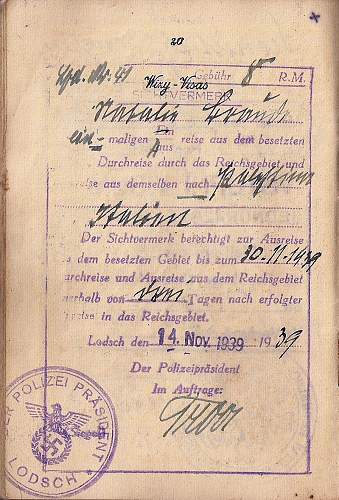 20
Lfd. Nr. 41 Gebühr 8 R.M.
Wizy-Visas
SICHTVERMERK
Natalie
ein-maligen reise aus dem besetzten
aus
Durchreise durch das Reichsgebiet und
reise aus demselben nach Palästina
Italien
Der Sichtvermerk berechtigt zur Ausreise
s dem besetzten Gebiet bis zum 30.11.1939
urchreise und Ausreise aus dem Reichsgebiet
nerhalb von drei Tagen nach erfolgter
reise in das Reichsgebiet.
Lodsch den 14. NOV. 1939 1939
Der Polizeipräsident
Im Auftrage:
DER POLIZEI PRÄSIDENT
LODSCH